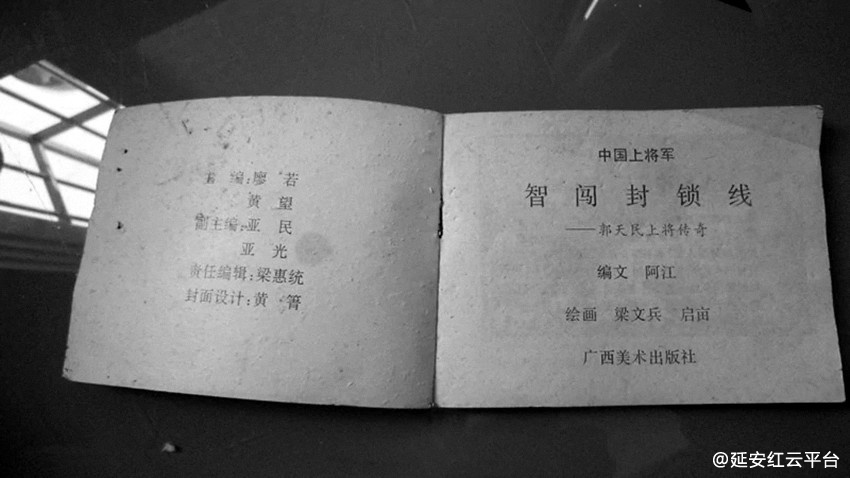 主编:廖若
黄望
副主编:亚民
亚光
责任编辑:梁惠统
封面设计:黄箐
中国上将军
智闯封锁线
——郭天民上将传奇
编文 阿江
绘画 梁文兵 启亩
广西美术出版社
@延安红云平台